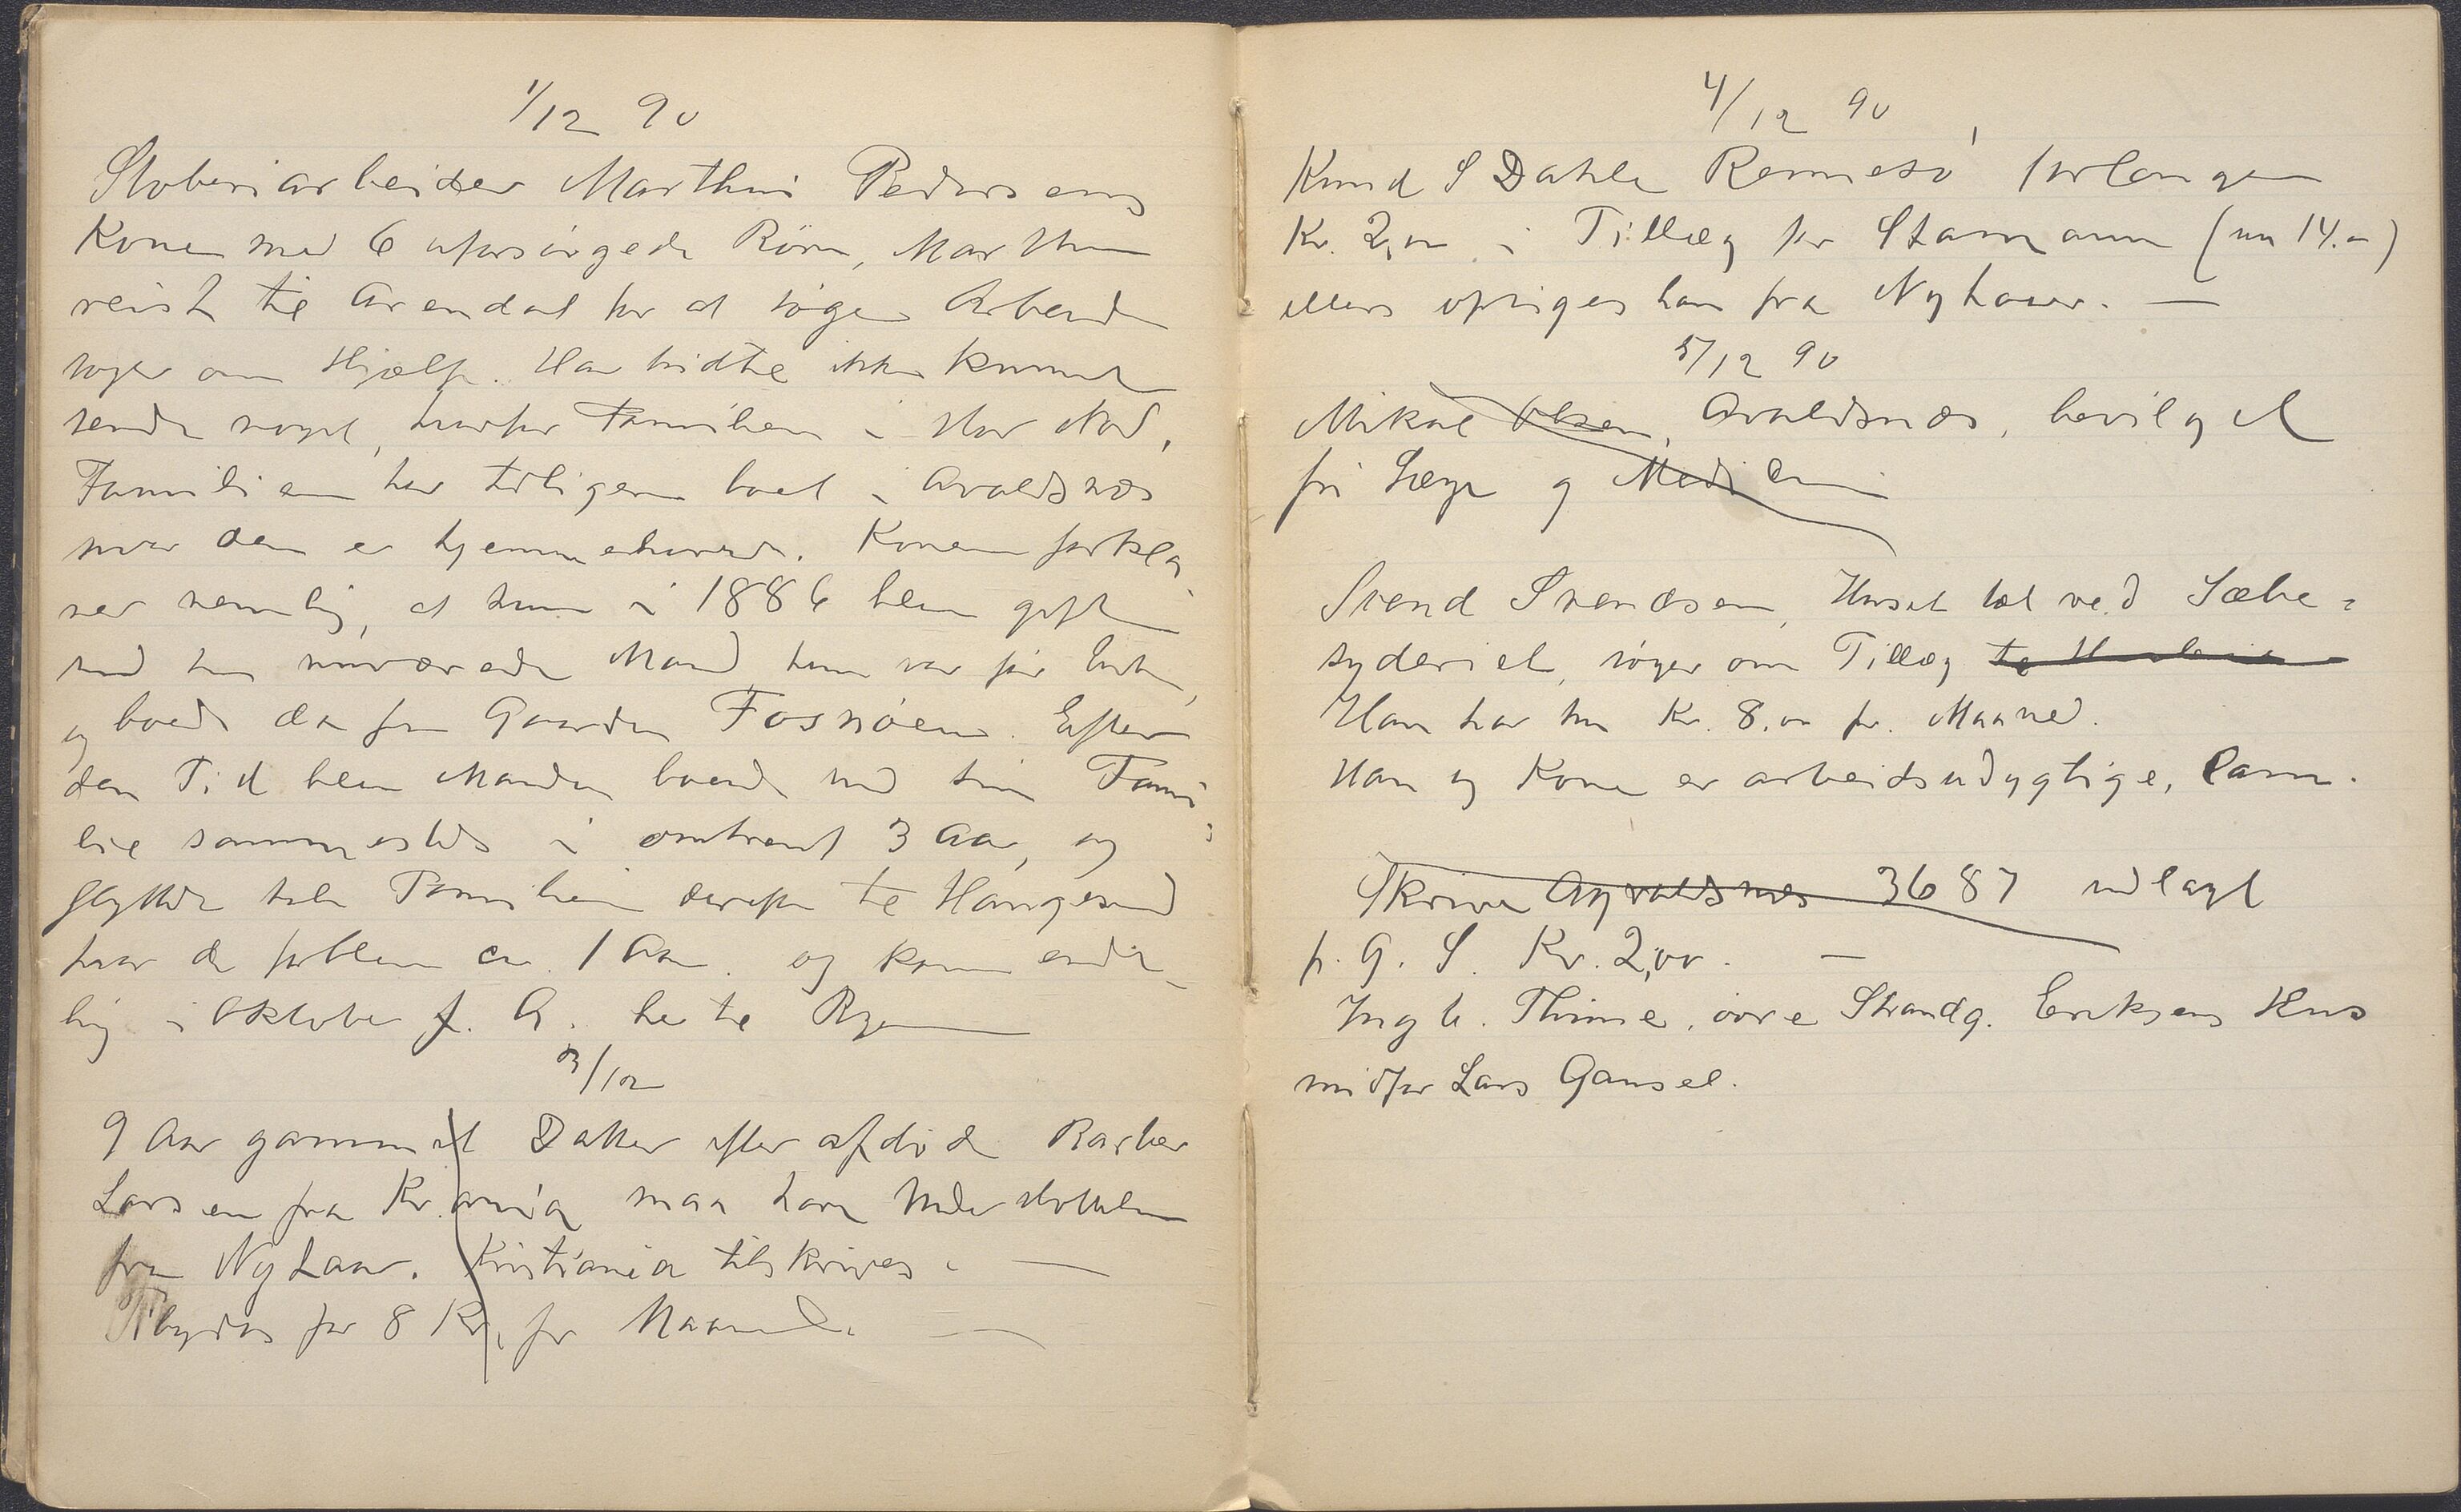 1/12 90
Støberiarbeider Marthin Pedersens
Kone med 6 uforsørgede Børn, Marthin
reist til Arendal for at søge Arbeide
søger om Hjælp. Han hidtil ikke kunnet
sende noget, hvorfor Familien i stor Nød,
Familien har tidligere boet i Avaldsnæs
hvor den er hjemmehørende. Konen forkla
rer nemlig, at hun i 1886 blev gift
med sin nuværende Mand, hun var før
og boede da paa Gaarden Fosnøen. Efter
den Tid blev Manden boende med sin Fami
lie sammesteds i omtrent 3 Aar, og
flyttede hele Familien derefter til Haugesund
hvor de forblev ca. 1 Aar. og kom ende
lig i Oktober f. A. her til Byen
3/12
9 Aar gammel Datter efter afdøde Barber
Larsen fra Kr.ania maa have Understøttelse
fra Nylaar. Kristiania tilskrives.
Tilbydes for 8 Kr. pr Maaned.
4/12 90
Knud S Dahle Rennesø, forlanger
Kr. 2,00 i Tillæg for Stamann (nu 14.00)
ellers opsiges han fra Nytaar.
5/12 90
Mikal Olsen, Avaldsnæs, bevilget
fri Læge og Medicin
Svend Svendsen, Huset tæt ved Sæbe=
syderiet, søger om Tillæg
Han har nu Kr. 8,00 pr. Maaned.
Han og Kone er arbeidsudygtige, lam.
Skrive Agvaldsnes 3687 udlagt
p. G. S. Kr. 2,00.
Ingb. Thime, øvre Strandg. Eriksens Hus
midfor Lars Gausel.